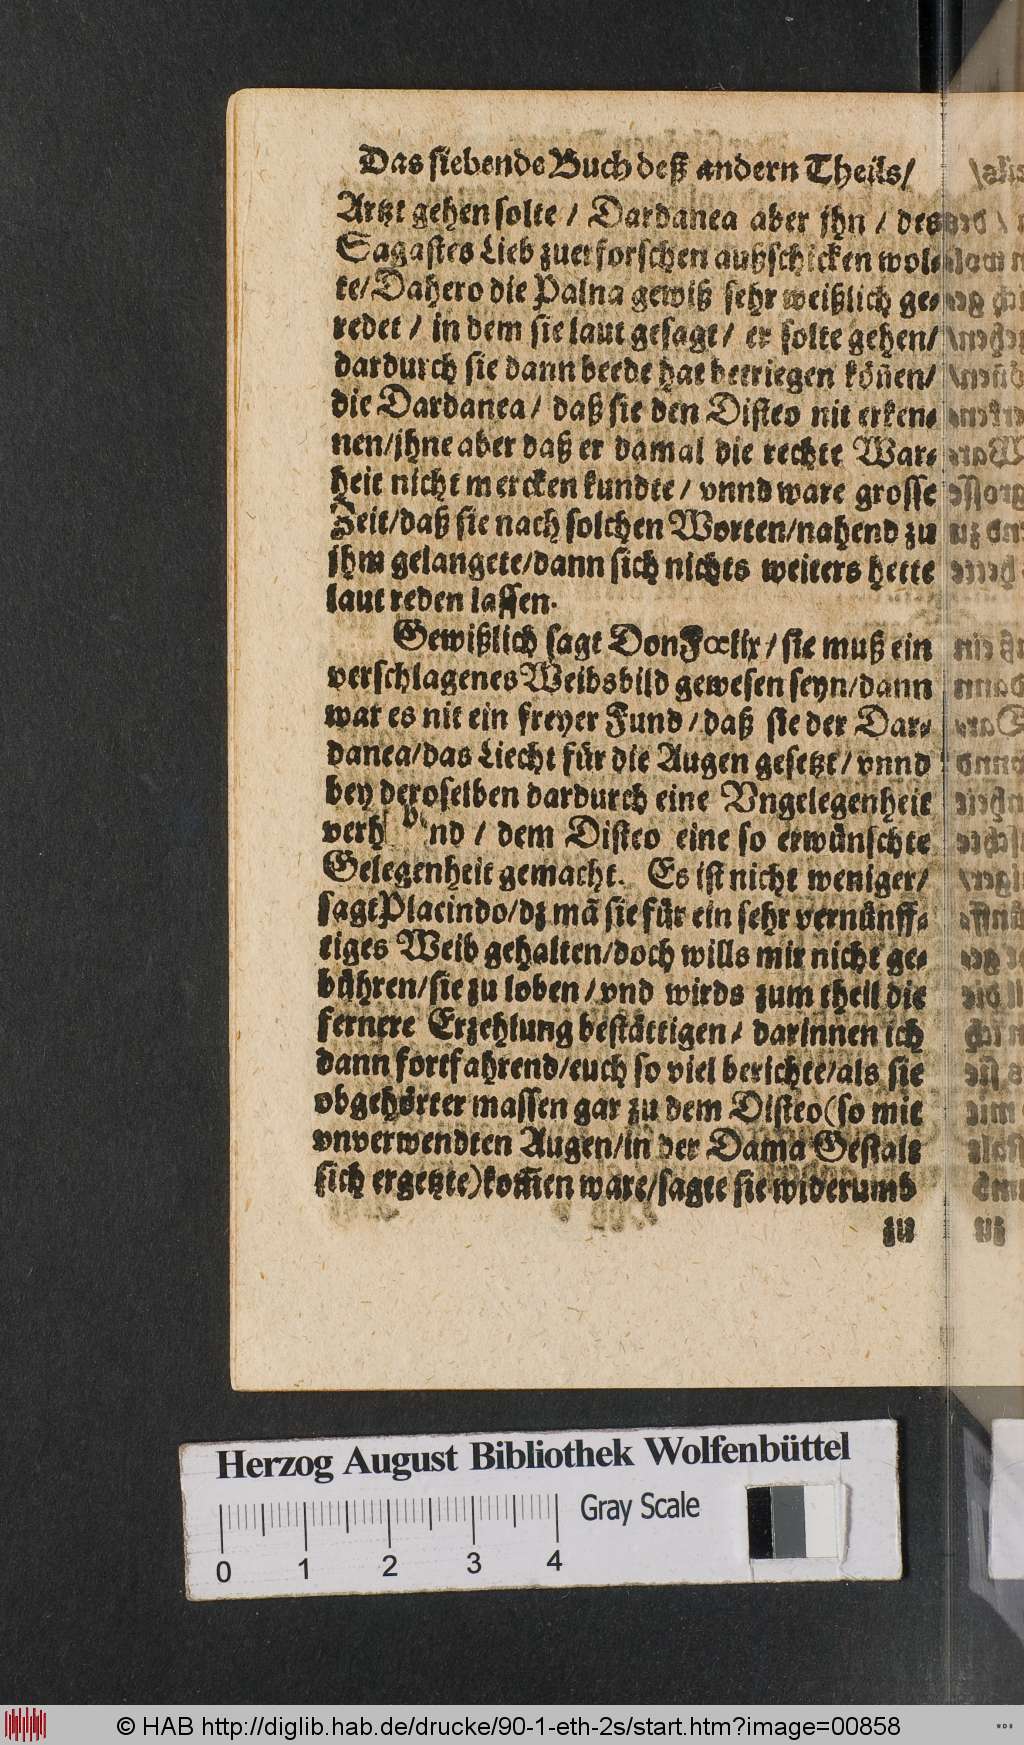 Das siebende Buch deß andern Theils/
Artzt gehen solte / Dardanea aber jhn / des
Sagastes Lieb zuerforschen außschicken wol-
te/Dahero die Palna gewiß sehr weißlich ge-
redet / in dem sie laut gesagt / er solte gehen/
dardurch sie dann beede hat betriegen köñen/
die Dardanea / daß sie den Disteo nit erken-
nen/jhne aber daß er damal die rechte War-
heit nicht mercken kundte / vnnd ware grosse
Zeit/daß sie nach solchen Worten/nahend zu
jhm gelangete/dann sich nichts weiters hette
laut reden lassen.
Gewißlich sagt Don Fœlix / sie muß ein
verschlagenes Weibsbild gewesen seyn/dann
war es nit ein freyer Fund / daß sie der Dar-
danea/das Liecht für die Augen gesetzt / vnnd
bey deroselben dardurch eine Vngelegenheit
nd / dem Disteo eine so erwünschte
Gelegenheit gemacht. Es ist nicht weniger/
sagt Placindo/dz mã sie für ein sehr vernünff-
tiges Weib gehalten/doch wills mir nicht ge-
bühren/sie zu loben / vnd wirds zum theil die
fernere Erzehlung bestättigen / darinnen ich
dann fortfahrend/euch so viel berichte/als sie
obgehörter massen gar zu dem Disteo(so mit
vnverwendten Augen/in der Dama Gestalt
sich ergetzte)kom̃en ware/sagte sie widerumb
zu
Herzog August Bibliothek Wolfenbüttel
Gray Scale
0 1 2 3 4
© HAB http://diglib.hab.de/drucke/90-1-eth-2s/start.htm?image=00858